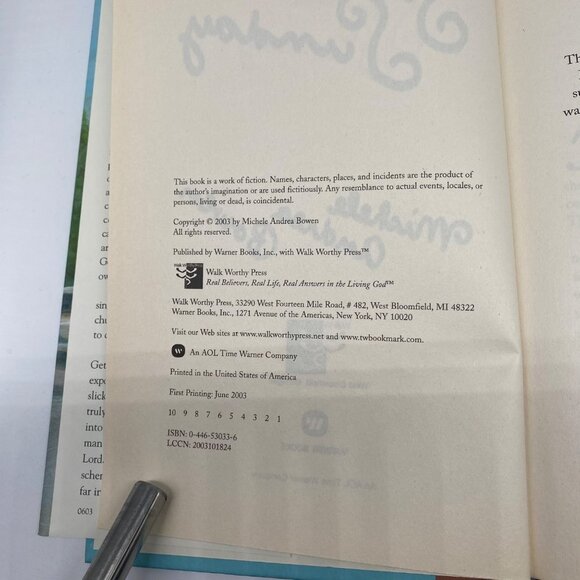 This book is a work of fiction. Names, characters, places, and incidents are the product of
the author's imagination or are used fictitiously. Any resemblance to actual events, locales, or
persons, living or dead, is coincidental.
Copyright © 2003 by Michele Andrea Bowen
All rights reserved.
Published by Warner Books, Inc., with Walk Worthy Press™
Walk Worthy Press
Real Believers, Real Life, Real Answers in the Living God™
Walk Worthy Press, 33290 West Fourteen Mile Road, # 482, West Bloomfield, MI 48322
Warner Books, Inc., 1271 Avenue of the Americas, New York, NY 10020
Visit our Web sites at www.walkworthypress.net and www.twbookmark.com.
An AOL Time Warner Company
Printed in the United States of America
First Printing: June 2003
10 9 8 7 6 5 4 3 2 1
ISBN: 0-446-53033-6
LCCN: 2003101824
Get
expo
slick
truly
into
man
Lord.
scher
far in
0603
Th
su
wa